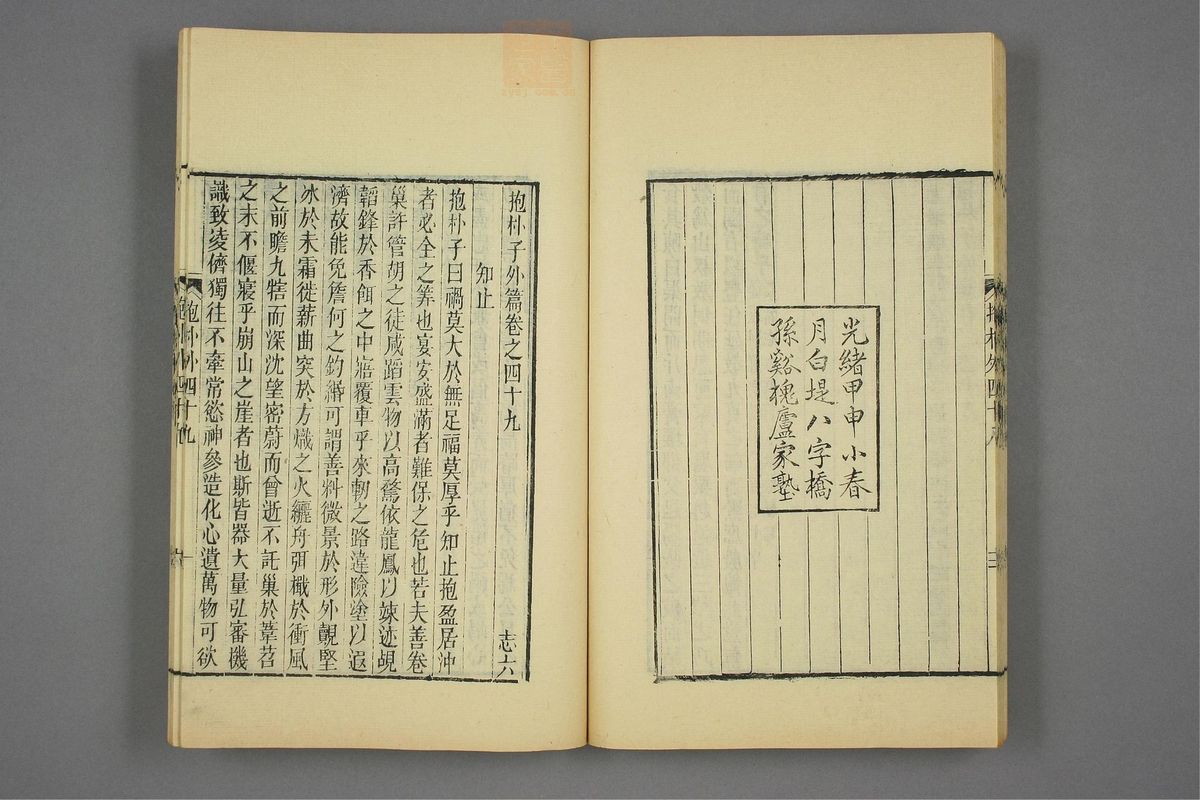 光緒甲申小春
月白堤八字橋
孫谿槐廬家塾
抱朴外四十八
三
抱朴子外篇卷之四十九
志六
知止
抱朴子曰禍莫大於無足福莫厚乎知止抱盈居沖
者必全之筭也宴安盛滿者難保之危也若夫善卷
巢許管胡之徒咸蹈雲物以高騖依龍鳳以竦迹覘
韜鋒於香餌之中寤覆車乎來軔之路違險塗以遐
濟故能免詹何之釣緡可謂善料微景於形外覿堅
冰於未霜徙薪曲突於方熾之火纚舟弭檝於衝風
之前瞻九犗而深沈望密蔚而曾逝不託巢於葦苕
之末不偃寢乎崩山之崖者也斯皆器大量弘審機
識致凌儕獨往不牽常慾神參造化心遺萬物可欲
抱朴外四十九
一